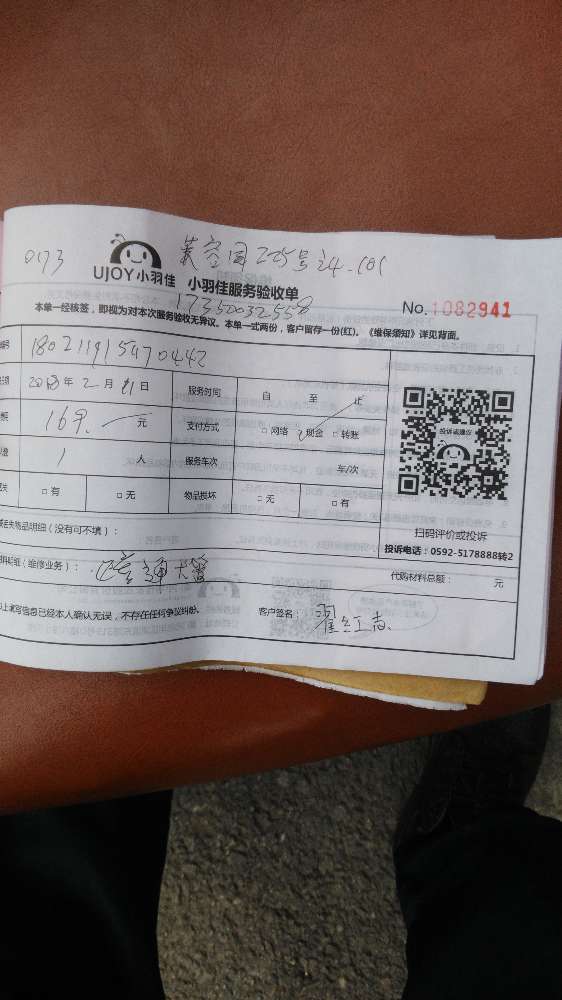 0173
UJOY小羽佳 小羽佳服务验收单
17350032558
No. 1082941
本单一经核签，即视为对本次服务验收无异议。本单一式两份，客户留存一份(红)。《维保须知》详见背面。
180211915470442
2018年2月11日 服务时间 自 至 止
169. 元 支付方式 □网络 现金 □转账
1 人 服务车次 车/次
□有 □无 物品损坏 □无 □有
投诉或建议
扫码评价或投诉
投诉电话：0592-5178888转2
丢失物品明细（没有可不填）：
（维修业务）： 代购材料总额： 元
以上填写信息已经本人确认无误，不存在任何争议纠纷。 客户签名：